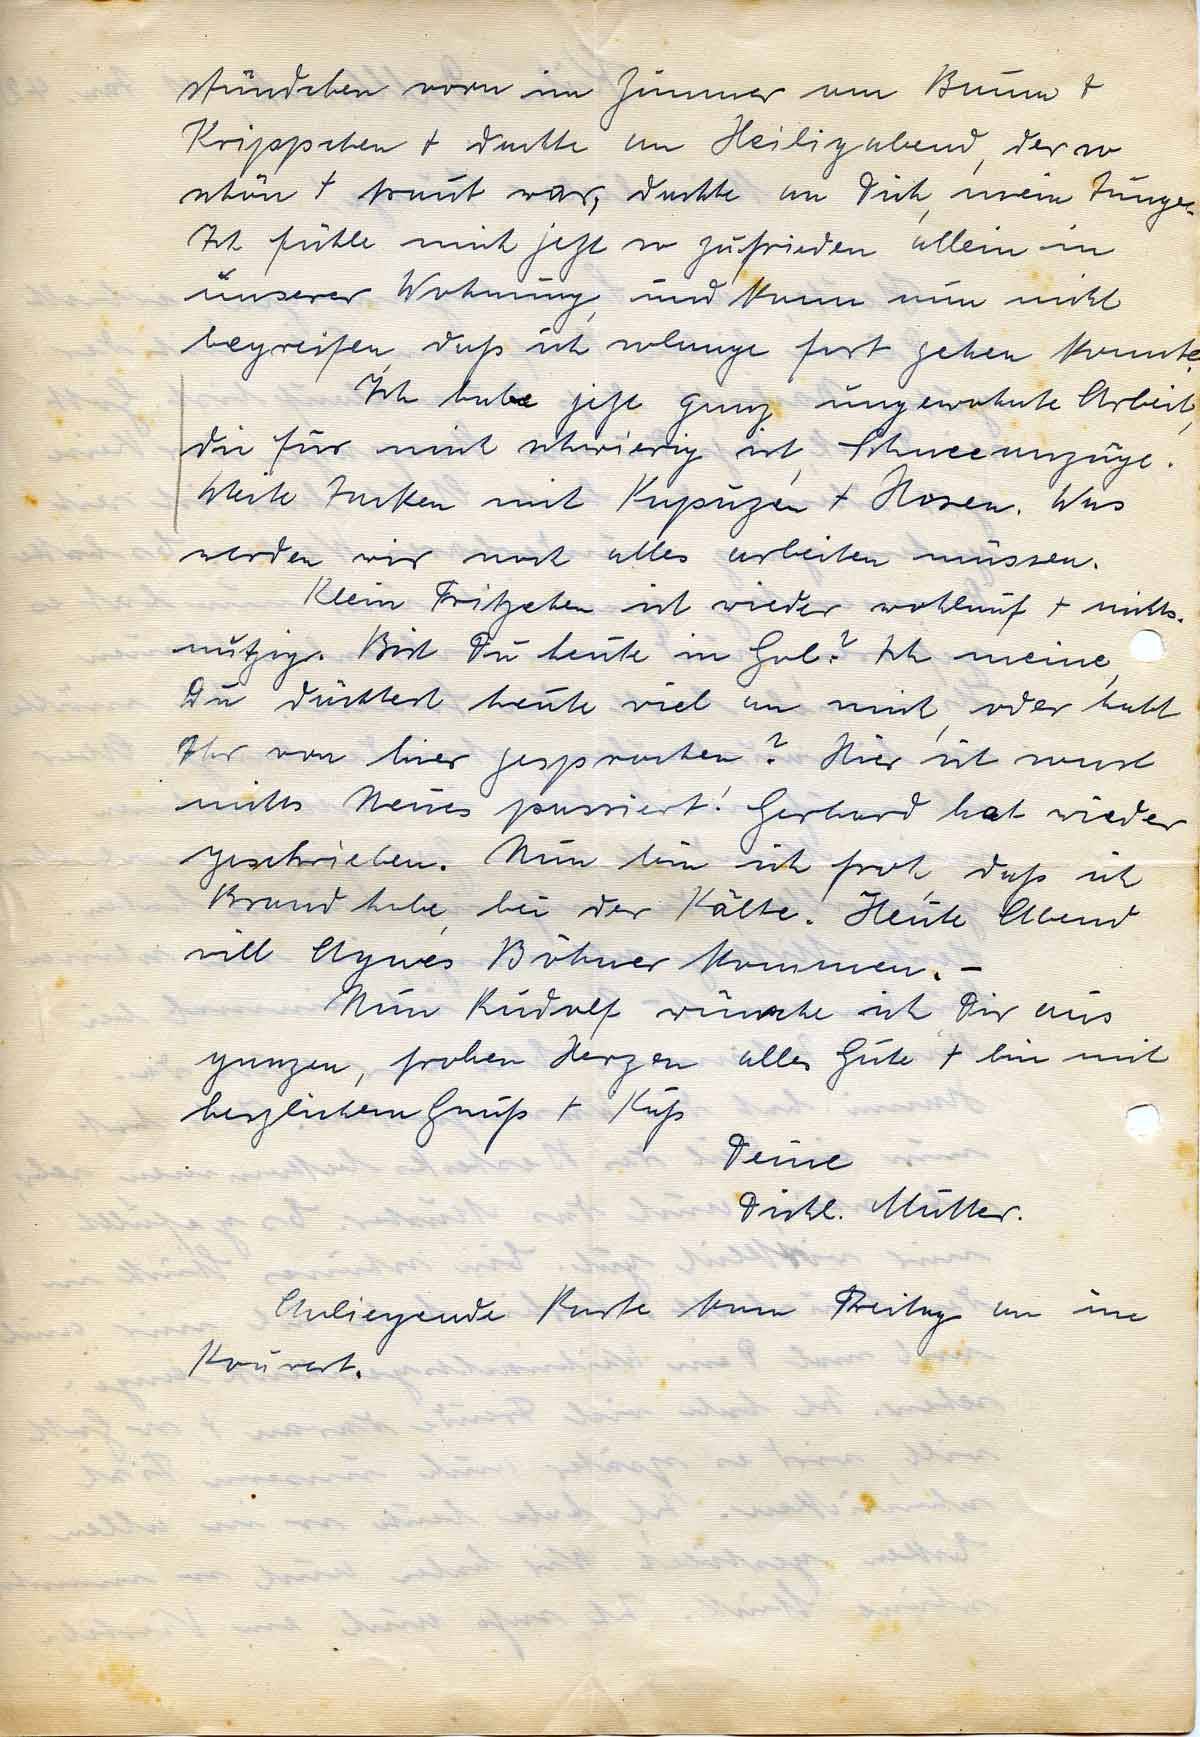 stündchen vorn im Zimmer am Baum +
Krippchen + dachte an Heiligabend, der so
schön + traut war, dachte an Dich, mein Junge.
Ich fühle mich jetzt so zufrieden allein in
unserer Wohnung, und kann nun nicht
begreifen, daß ich solange fort gehen konnte.
Ich habe jetzt ganz ungewohnte Arbeit,
die für mich schwierig ist, Schneeanzüge.
Weite Jacken mit Kapuzen + Hosen. Was
werden wir noch alles arbeiten müssen.
Klein Fritzchen ist wieder wohlauf + nichts-
nutzig. Bist Du heute in Gol.? Ich meine,
Du dächtest heute viel an mich, oder habt
Ihr von hier gesprochen? Hier ist sonst
nichts Neues passiert! Gerhard hat wieder
geschrieben. Nun bin ich froh, daß ich
Brand habe, bei der Kälte. Heute Abend
will Agnes Böhner kommen. –
Nun Rudolf wünsche ich Dir aus
ganzen, frohen Herzen alles Gute + bin mit
herzlichem Gruß + Kuß
Deine
Dichl. Mutter.
Anliegende Karte kam Freitag an im
Kouvert.